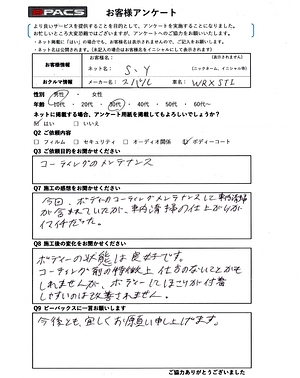 SPACS お客様アンケート
より良いサービスを提供することを目的として、アンケートを実施することになりました。
お忙しいところ大変恐縮ではございますが、アンケートへのご協力をお願いいたします。
・ネット掲載に「はい」の場合でも、お客様名は表示されませんので、ご記入をお願いします。
・ネット名は公開されます。(未記入の場合はお客様名をイニシャルにして表示されます)
お客様情報
お客様名: (表示されません)
ネット名: S、Y (ニックネーム、イニシャル等)
おクルマ情報 メーカー名: スバル 車名: WRX STI
性別 男性 ・ 女性
年齢 10代 ・ 20代 ・ 30代 ・ 40代 ・ 50代 ・ 60代~
ネットに掲載する場合、アンケート用紙を掲載してもよろしいでしょうか?
はい □ いいえ
Q2 ご依頼内容
□ フィルム □ セキュリティ □ オーディオ関係 ☑ ボディーコート
Q3 ご依頼目的をお聞かせください
コーティングのメンテナンス
Q7 施工の感想をお聞かせください
今回、ボディーのコーティングメンテナンスして車内清掃
が含まれていたが、車内清掃の仕上がりが
イマイチだった。
Q8 施工後の変化をお聞かせください
ボディーの状態は良好です。
コーティング剤の特徴上仕方のないことかも
しれませんが、ボディーにほこりが付着
しやすいのは改善されません。
Q9 ビーパックスに一言お願いします
今後とも、宜しくお願い申し上げます。
ご協力ありがとうございました